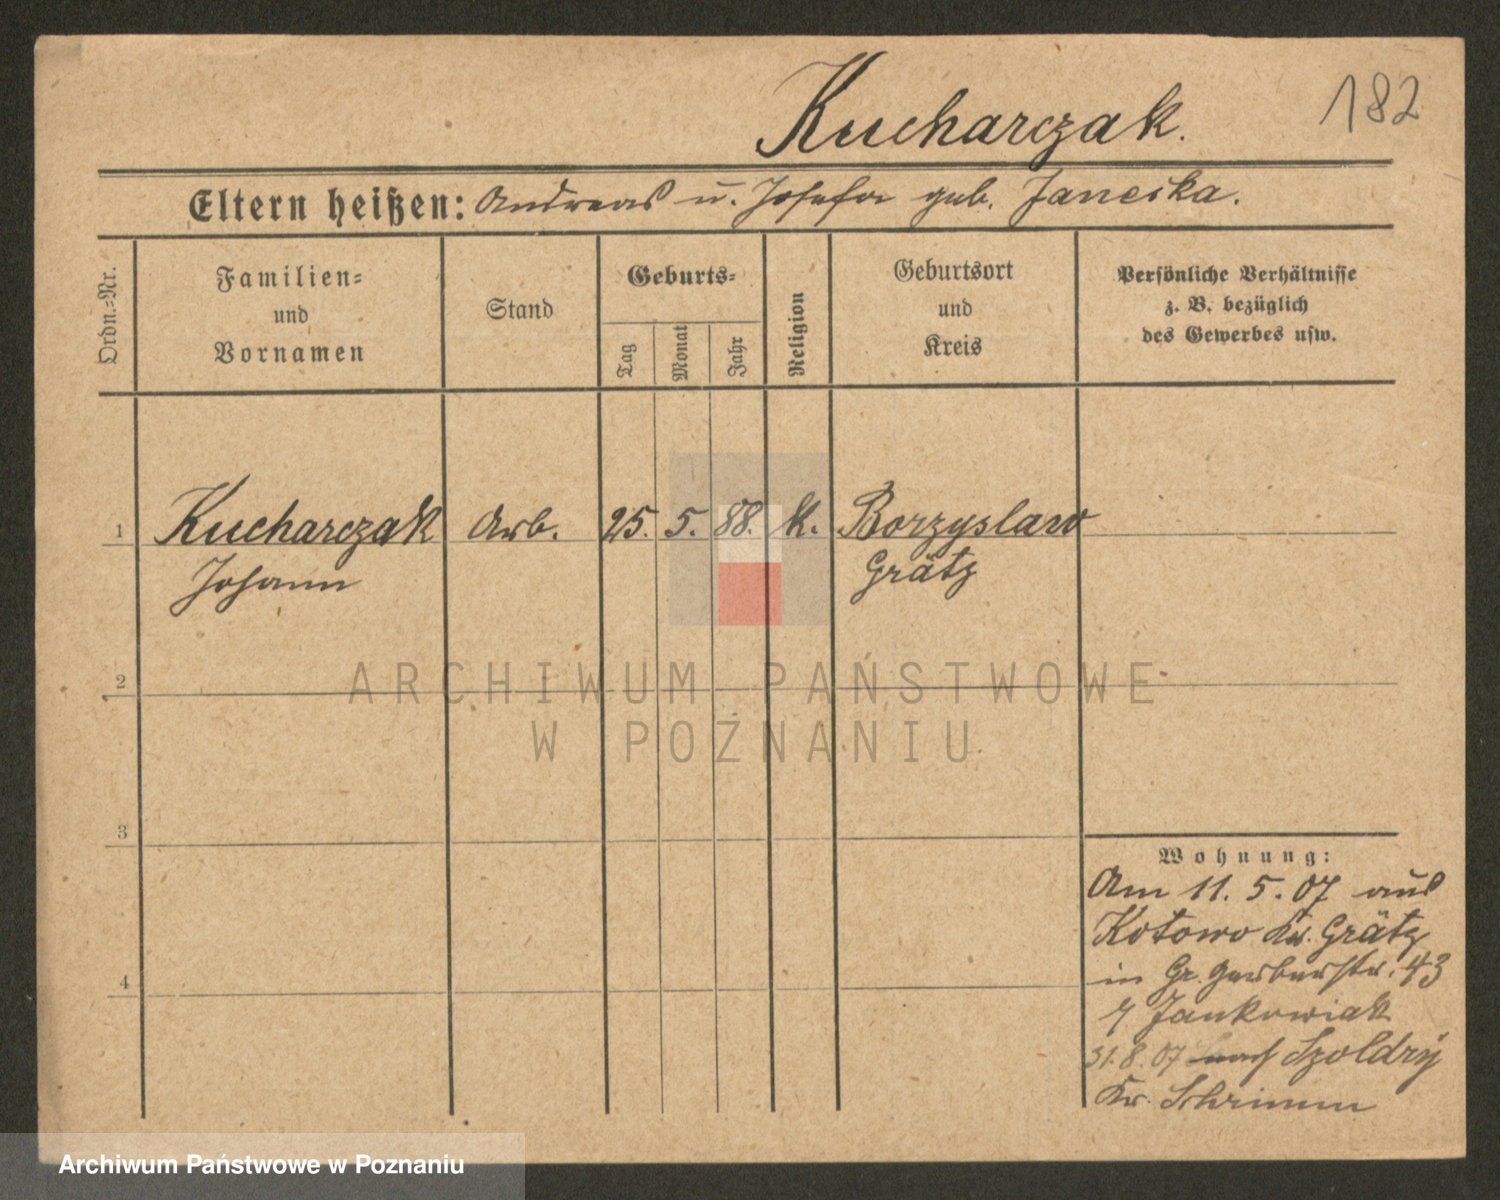 Kucharczak.
182
Eltern heißen: Andreas u. Josefa geb. Janecka.
Ordn.-Nr.
Familien-
und
Vornamen
Stand
Geburts-
Tag
Monat
Jahr
Religion
Geburtsort
und
Kreis
Persönliche Verhältnisse
z. B. bezüglich
des Gewerbes usw.
1 Kucharczak Arb. 25. 5. 88. K. Borzyslaw
Johann Grätz
2
ARCHIWUM PAŃSTWOWE
W POZNANIU
3
Wohnung:
Am 11. 5. 07 aus
Kotowo Kr. Grätz
in Gr. Gerberstr. 43
Jankowiak
31. 8. 07 nach Szoldry
Kr. Schrimm
4
Archiwum Państwowe w Poznaniu